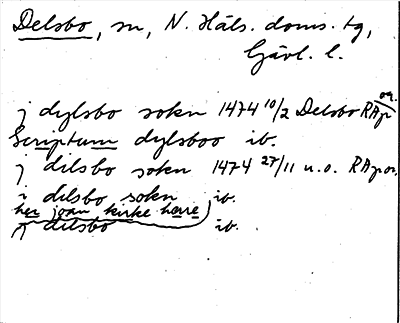 Delsbo, sn, N. Häls. doms. tg,
Gävl. l.
j dylsbo sokn 1474 10/2 Delsbo RAp or.
Scriptum dylsboo ib.
j dilsbo sokn 1474 27/11 u.o. RAp or.
i dilsbo sokn ib.
her joan kirke herre
j dilsbo ib.